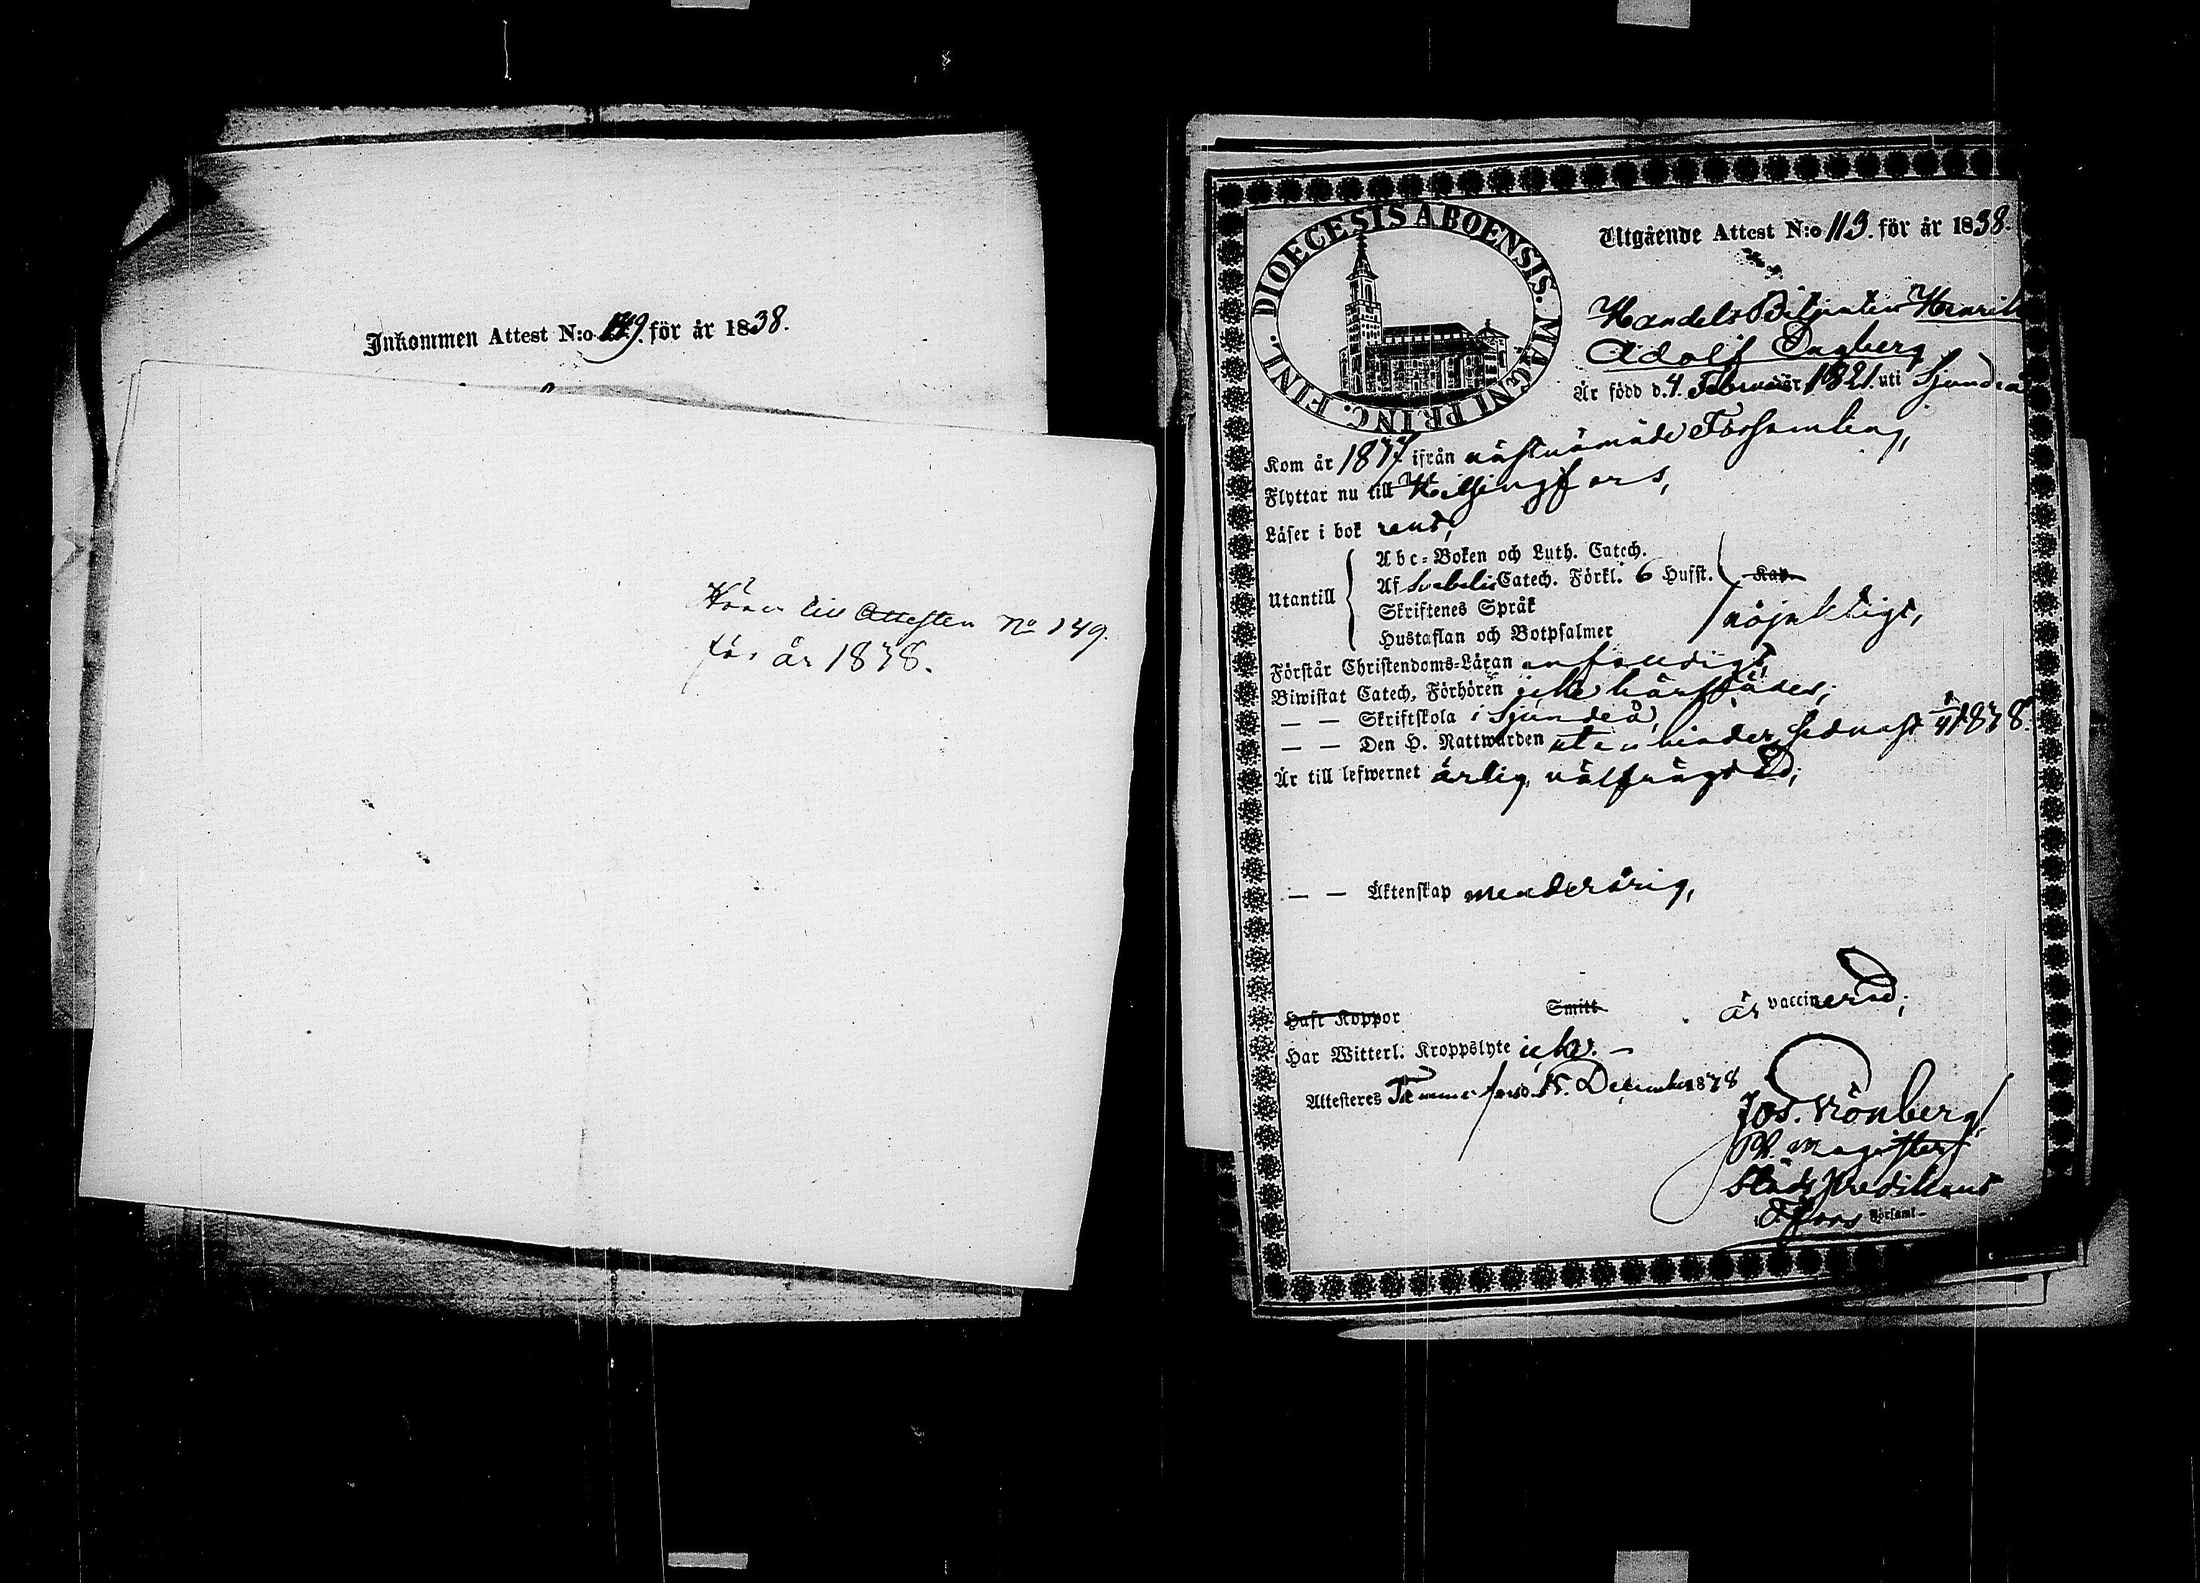 Inkommen Attest N:o 149. för år 1838.
Hörer till Attesten No 149.
för år 1838.
DIOECESIS ABOENSIS. MAGNI PRINC. FINL.
Utgående Attest N:o 113. för år 1838.
Handels Betjenten Henrik
Adolf Engberg
Är född d. 4. Februari 1821. uti Sjundeå
Kom år 1837 ifrån nästnämnde Församling,
Flyttar nu till Helsingfors,
Läser i bok rent,
Utantill
Abc-Boken och Luth. Catech.
Af Svebelii Catech. Förkl. 6 Hufst. Kap.
Skriftenes Språk
Hustaflan och Botpsalmer
nöjaktigt,
Förstår Christendoms-Läran enfaldigt,
Biwistat Catech. Förhören icke härstädes;
— — Skriftskola i Sjundeå,
— — Den H. Nattwarden utan hinder sednast 1838.
Är till lefwernet ärlig, välfrägdad;
— — Äktenskap minderårig,
Haft Koppor Smitt är vaccinerad;
Har Witterl. Kroppslyte icke. —
Attesteres Tammerfors d. 15. December 1838
Jos. Grönberg
Ph. Magister
Stads Predikant
i T:fors Församl.